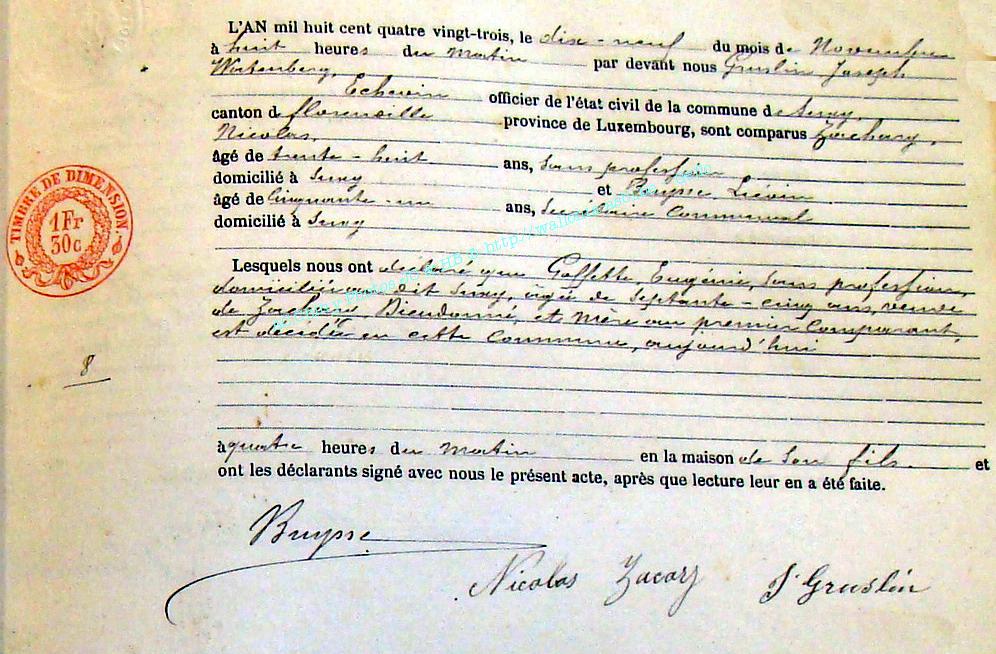 L'AN mil huit cent quatre vingt-trois, le dix-neuf du mois de Novembre
à huit heures du Matin par devant nous Gruslin Joseph
Echevin officier de l'état civil de la commune de Suxy,
canton de florenville province de Luxembourg, sont comparus Zachary,
Nicolas,
âgé de trente-huit ans, sans profession
domicilié à Suxy et Buysse Liévin
âgé de Cinquante-un ans, Secrétaire Communal
domicilié à Suxy
Lesquels nous ont déclaré que Goffette, Eugénie, sans profession,
domiciliée au dit Suxy, âgée de Septante-cinq ans, veuve
de Zachary, Dieudonné, et mère au premier Comparant,
est décédée en cette Commune, aujourd'hui
8
à quatre heures du matin en la maison de son fils. et
ont les déclarants signé avec nous le présent acte, après que lecture leur en a été faite.
Buysse
Nicolas Zacary J Gruslin
TIMBRE DE DIMENSION
1 Fr
30 c